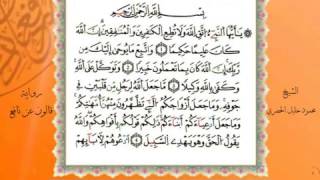 بسم الله الرحمن الرحيم
يأيها النبيء اتق الله ولا تطع الكفرين والمنفقين إن الله
كان عليما حكيما ۝ واتبع ما يوحى إليك من
ربك إن الله كان بما تعملون خبيرا ۝ وتوكل على الله
وكفى بالله وكيلا ۝ ما جعل الله لرجل من قلبين في
جوفه وما جعل أزواجكم الے تظهرون منهن أمهتكم
وما جعل أدعياءكم أبناءكم ذلكم قولكم بأفواهكم والله
يقول الحق وهو يهدي السبيل ۝ ادعوهم لأبائهم
الشيخ
محمود خليل الحصري
رواية
قالون عن نافع